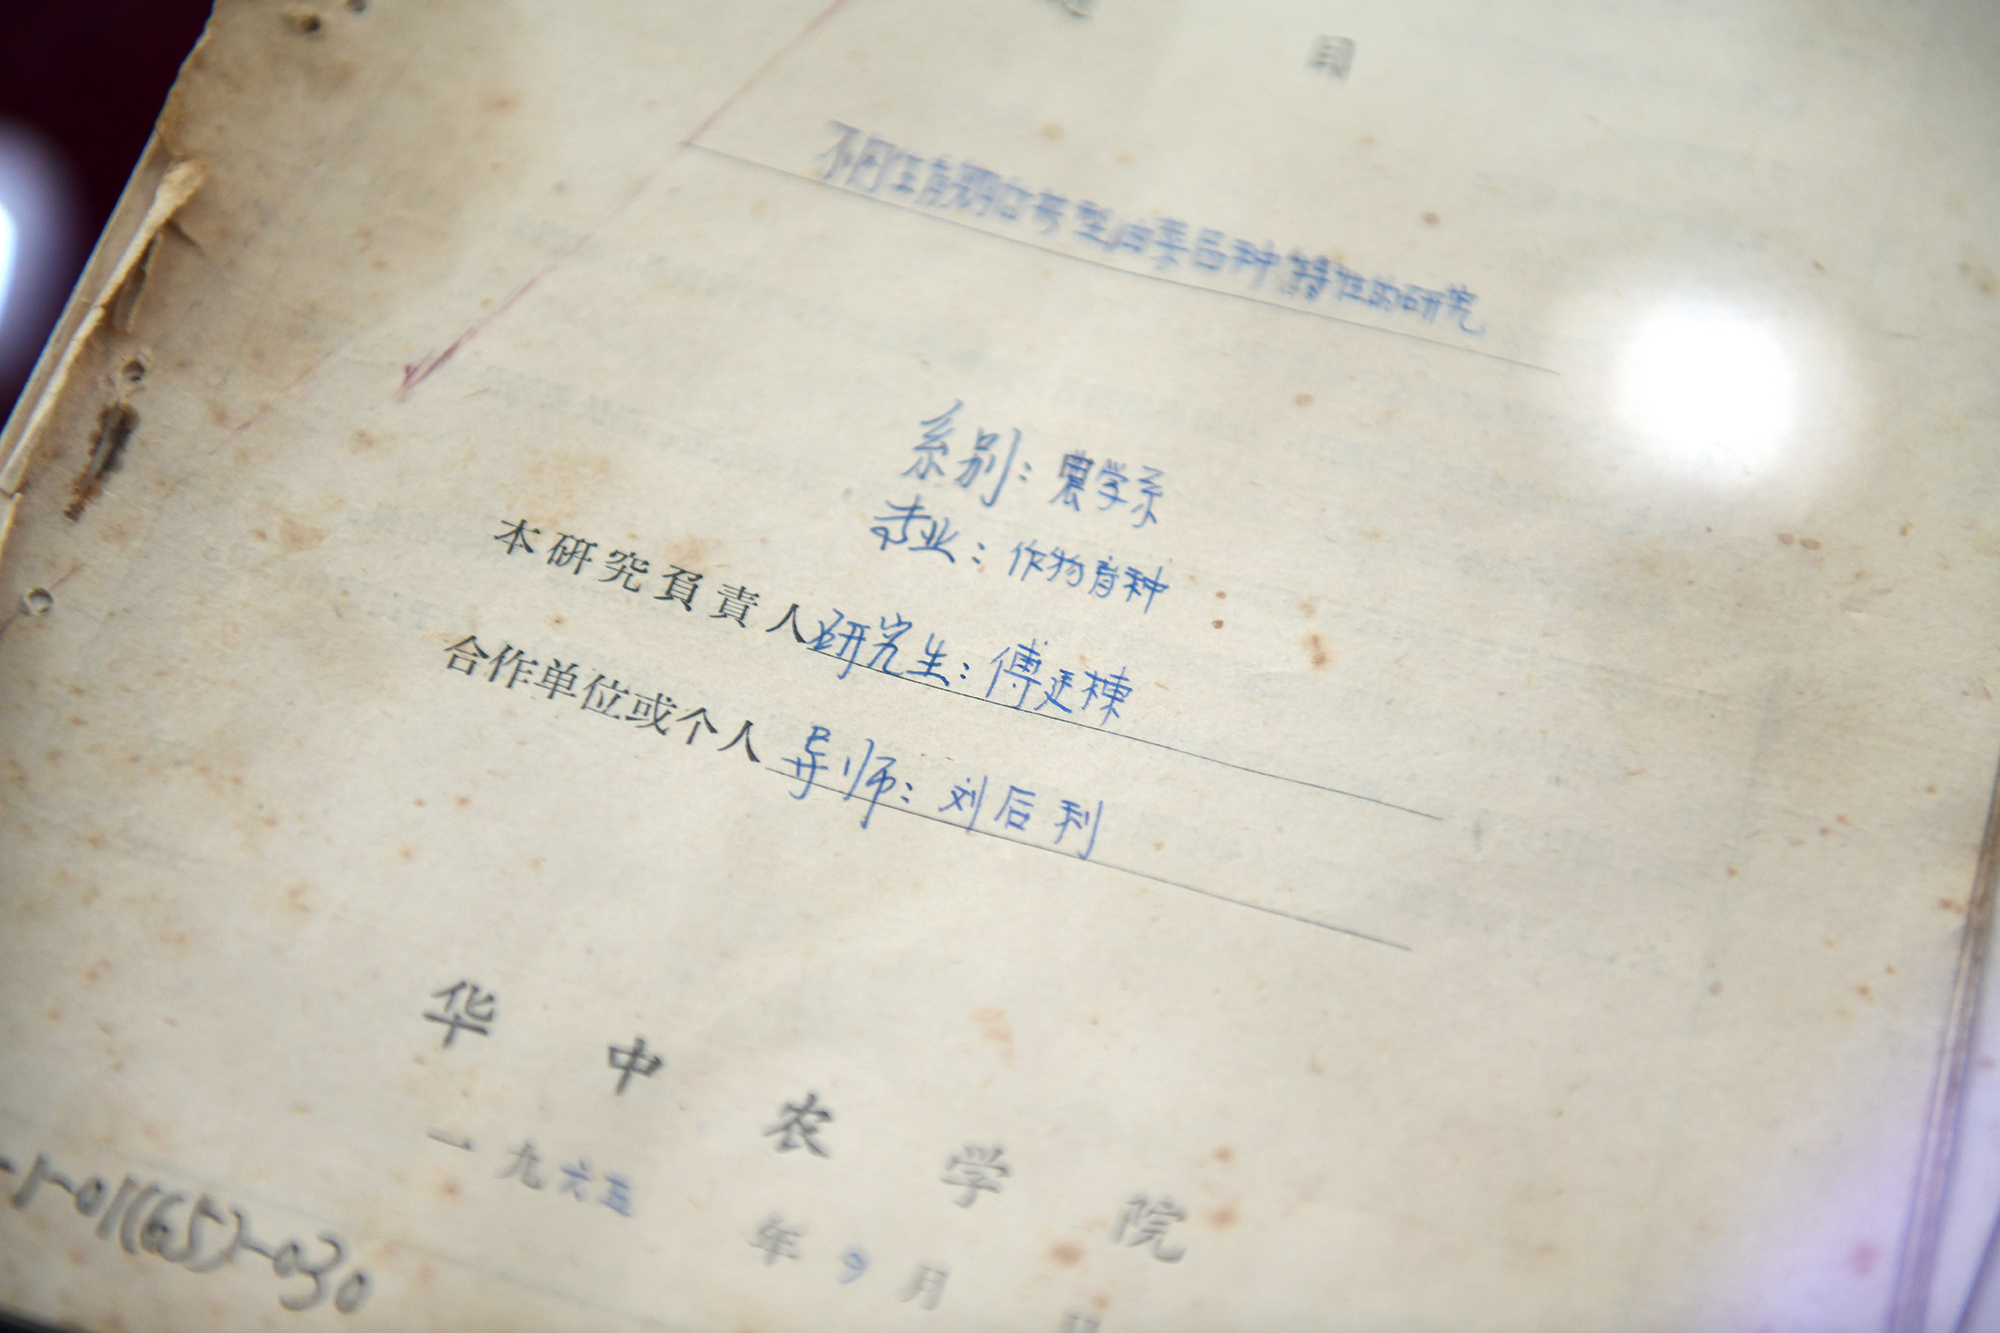 目
不同生育期甘蓝型油菜品种特性的研究
系别：農学系
专业：作物育种
本研究負責人研究生：傅廷棟
合作单位或个人导师：刘后利
华中农学院
一九六五年9月
-1-01(65)-030